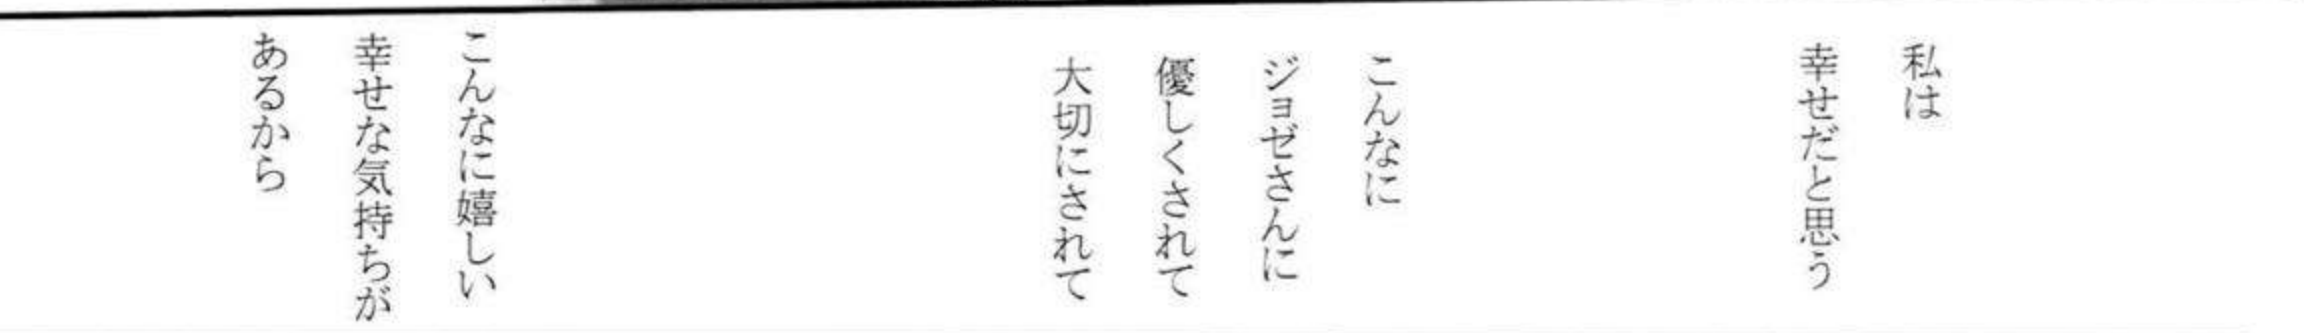 私は
幸せだと思う
こんなに
ジョゼさんに
優しくされて
大切にされて
こんなに嬉しい
幸せな気持ちが
あるから